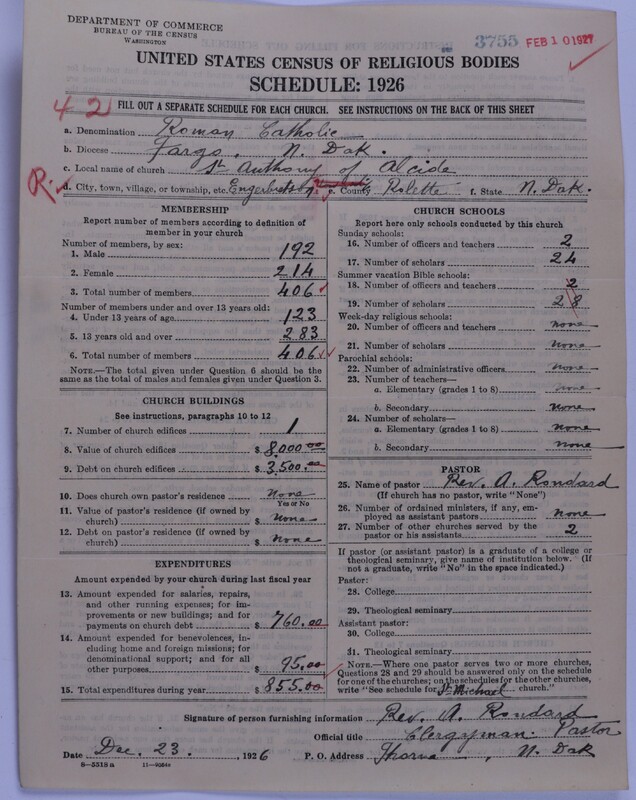 DEPARTMENT OF COMMERCE
BUREAU OF THE CENSUS
WASHINGTON
3755 FEB 10 1927
UNITED STATES CENSUS OF RELIGIOUS BODIES
SCHEDULE: 1926
42
FILL OUT A SEPARATE SCHEDULE FOR EACH CHURCH. SEE INSTRUCTIONS ON THE BACK OF THIS SHEET
a. Denomination Roman Catholic
b. Diocese Fargo, N. Dak.
c. Local name of church St Anthony of Alcide
R. d. City, town, village, or township, etc. e. County Rolette f. State N. Dak.
MEMBERSHIP
Report number of members according to definition of
member in your church
Number of members, by sex:
1. Male 192
2. Female 214
3. Total number of members 406
Number of members under and over 13 years old:
4. Under 13 years of age 123
5. 13 years old and over 283
6. Total number of members 406
NOTE.—The total given under Question 6 should be the
same as the total of males and females given under Question 3.
CHURCH BUILDINGS
See instructions, paragraphs 10 to 12
7. Number of church edifices 1
8. Value of church edifices $ 8,000.00
9. Debt on church edifices $ 3,500.00
10. Does church own pastor's residence None
Yes or No
11. Value of pastor's residence (if owned by
church) $ None
12. Debt on pastor's residence (if owned by
church) $ None
EXPENDITURES
Amount expended by your church during last fiscal year
13. Amount expended for salaries, repairs,
and other running expenses; for im-
provements or new buildings; and for
payments on church debt $ 760.00
14. Amount expended for benevolences, in-
cluding home and foreign missions; for
denominational support; and for all
other purposes $ 95.00
15. Total expenditures during year $ 855.00
CHURCH SCHOOLS
Report here only schools conducted by this church
Sunday schools:
16. Number of officers and teachers 2
17. Number of scholars 24
Summer vacation Bible schools:
18. Number of officers and teachers 2
19. Number of scholars 28
Week-day religious schools:
20. Number of officers and teachers none
21. Number of scholars None
Parochial schools:
22. Number of administrative officers none
23. Number of teachers—
a. Elementary (grades 1 to 8) none
b. Secondary None
24. Number of scholars—
a. Elementary (grades 1 to 8) none
b. Secondary none
PASTOR
25. Name of pastor Rev. A. Rondard
(If church has no pastor, write "None")
26. Number of ordained ministers, if any, em-
ployed as assistant pastors none
27. Number of other churches served by the
pastor or his assistants 2
If pastor (or assistant pastor) is a graduate of a college or
theological seminary, give name of institution below. (If
not a graduate, write "No" in the space indicated.)
Pastor:
28. College
29. Theological seminary
Assistant pastor:
30. College
31. Theological seminary
NOTE.—Where one pastor serves two or more churches,
Questions 28 and 29 should be answered only on the schedule
for one of the churches; on the schedules for the other churches,
write "See schedule for St Michael church."
Signature of person furnishing information Rev. A. Rondard
Official title Clergyman. Pastor
Date Dec. 23, 1926 P. O. Address Thorne, N. Dak
8—5318 a 11—9264a